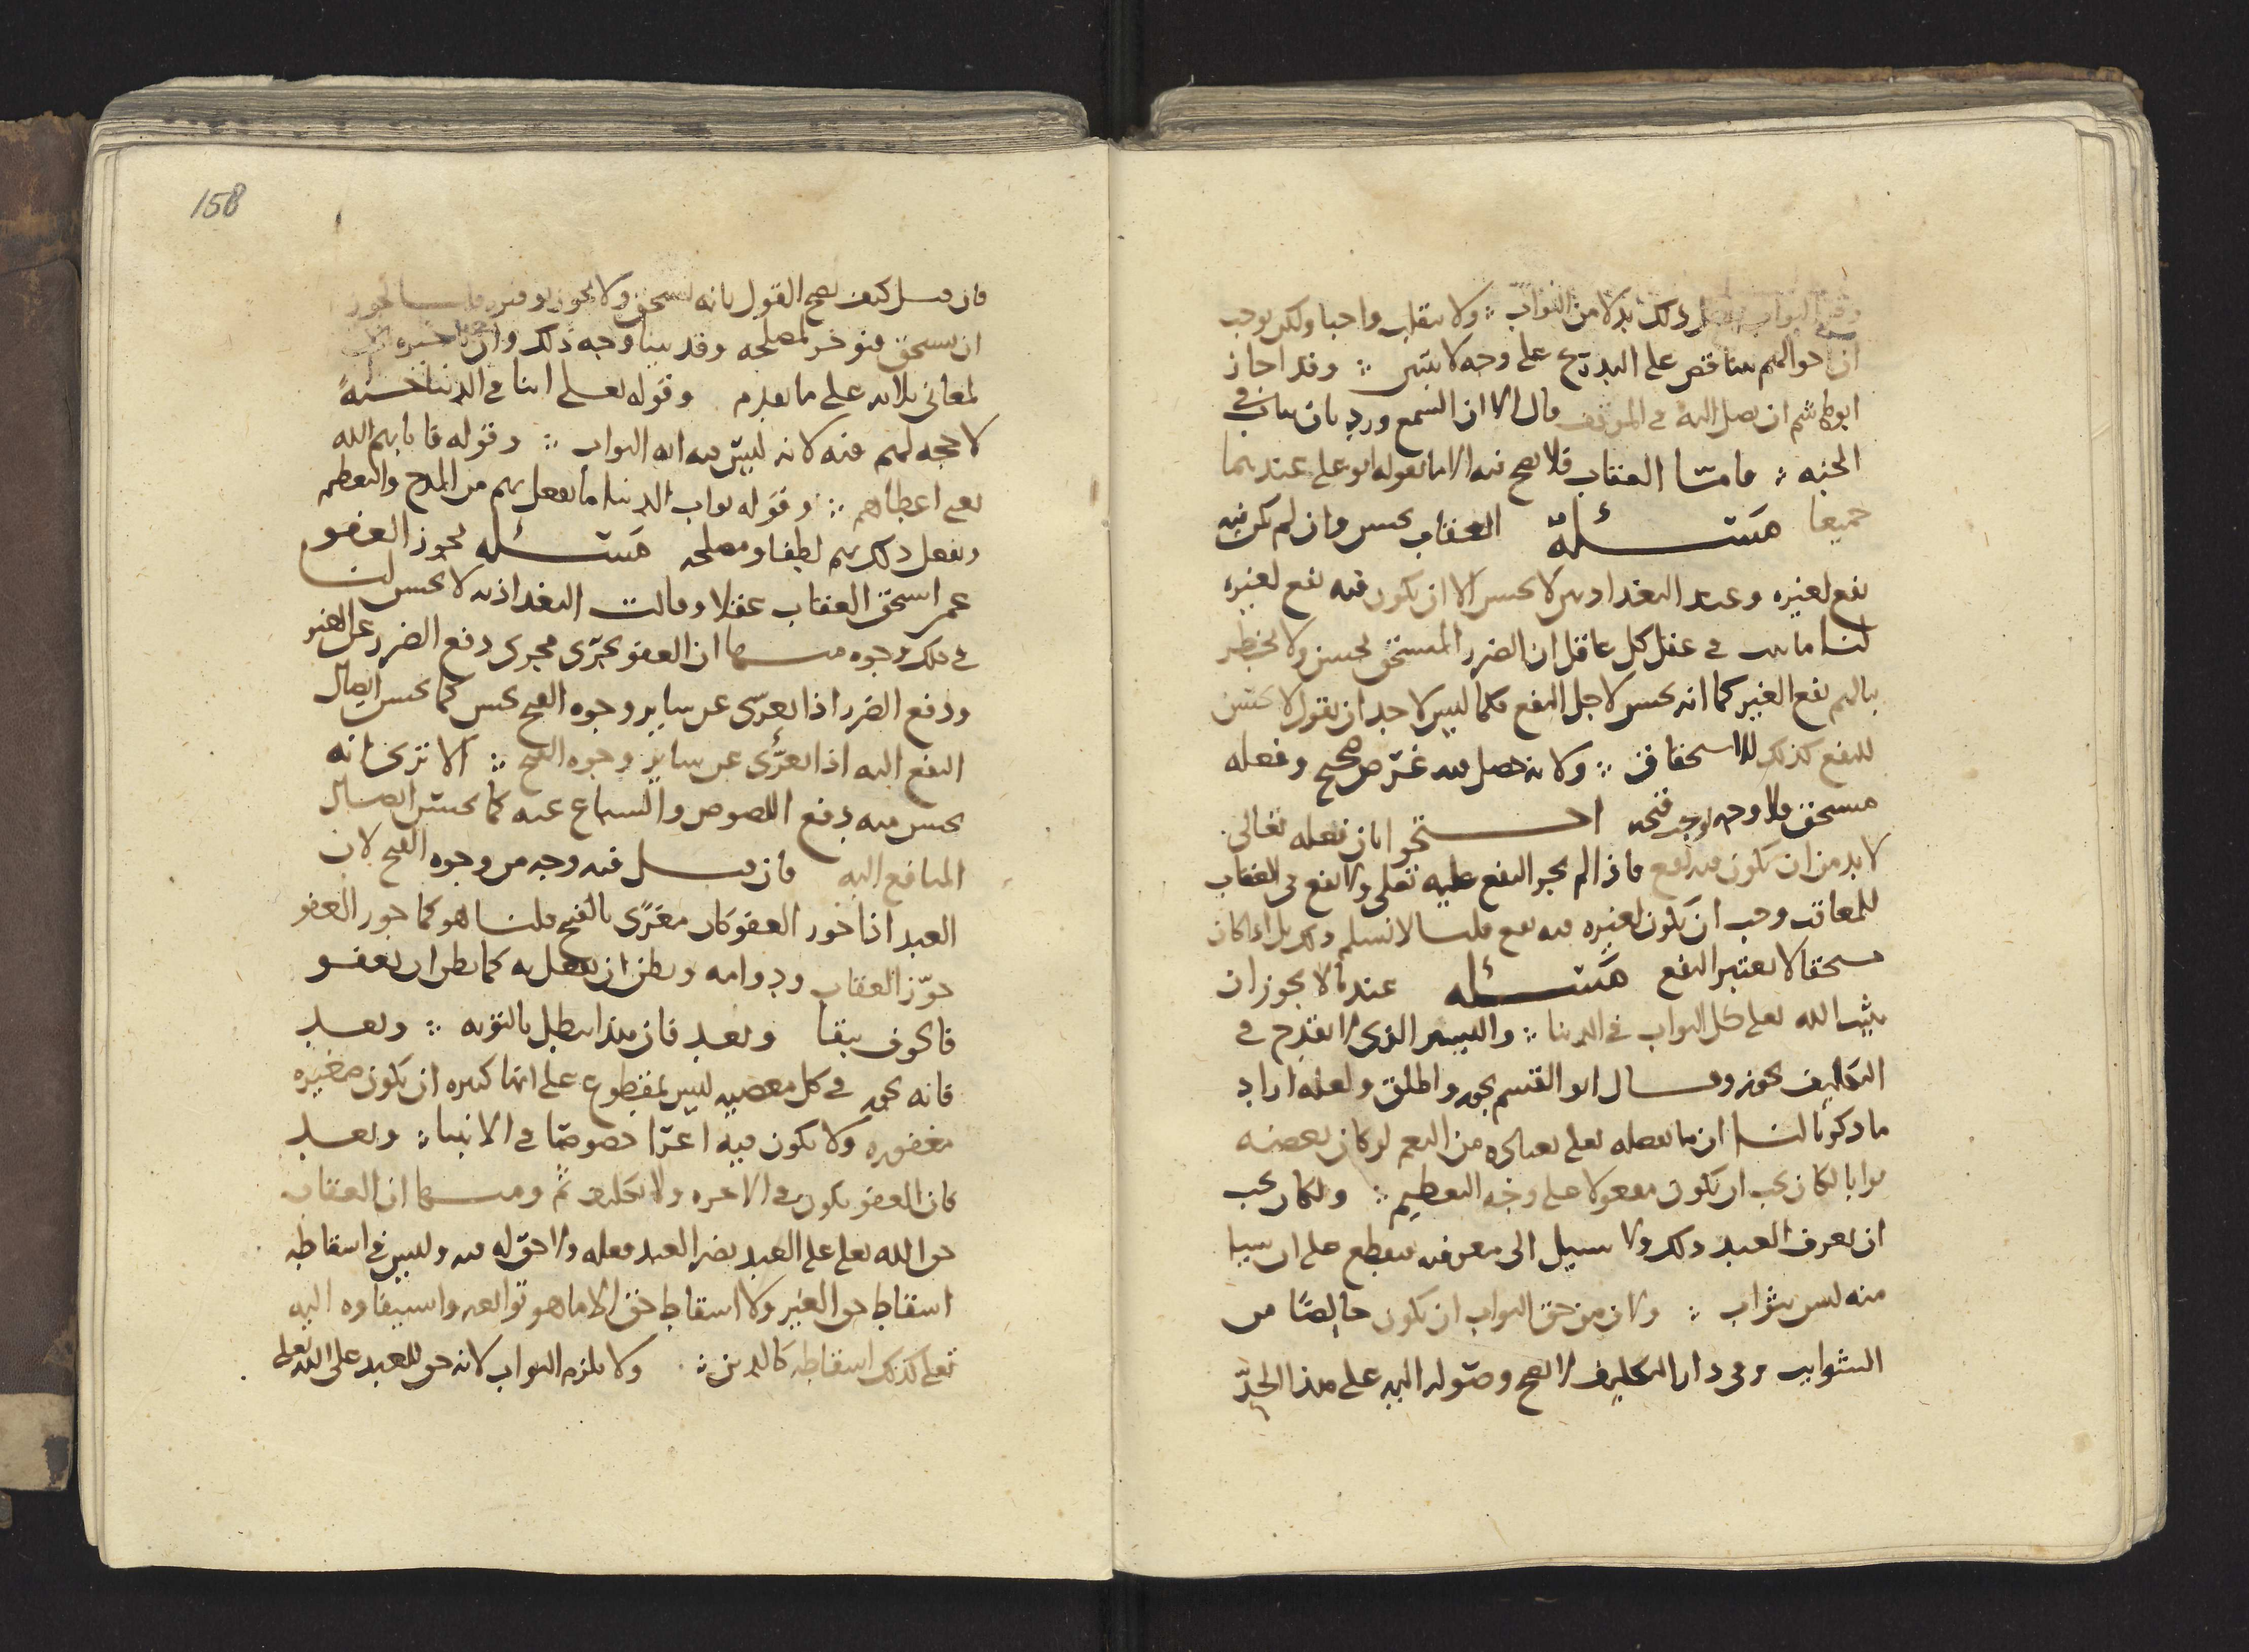 ذلك بدلا من الثواب ∴ ولا ينقلب واجبا ولكن يوجب
ان احوالهم تتناقص على التدريج على وجه لا يتبين ∴ وقد اجاز
ابو هاشم ان يصل اليه في الموقف قال الا ان السمع ورد بان يثاب في
الجنة ∴ فامّا العقاب فلا يصح فيه الا ما يقوله ابو علي عندهما
جميعا مسئلة العقاب يحسن وان لم يكن فيه
نفع لغيره وعند البغداديين لا يحسن الا ان يكون فيه نفع لغيره
لنا ما ثبت في عقل كل عاقل ان الضرر المستحق يحسن ولا يخطر
بالهم نفع الغير كما انه يحسن لاجل النفع فكما ليس لاحد ان يقول لا يحسن
للنفع كذلك للاستحقاق ∴ ولانه حصل فيه غرض صحيح وفعله
مستحق فلا وجه يوجب قبحه احتجوا بان فعله تعالى
لا بد من ان يكون فيه نفع فاذا لم يجز النفع عليه تعالى ولا نفع في العقاب
للمعاقب وجب ان يكون لغيره فيه نفع قلنا لا نسلم ذلك بل اذا كان
مستحقا لا يعتبر النفع مسئله عندنا لا يجوز ان
يثيب الله تعالى كل الثواب في الدنيا ∴ واليسير الذي لا يقدح في
التكليف يجوز وقال ابو القسم يجوز واطلق ولعله اراد
ما ذكرنا لنا ان ما يفعله تعالى بعباده من النعم لو كان بعضه
ثوابا لكان يجب ان يكون مفعولا على وجه التعظيم ∴ ولكان يجب
ان يعرف العبد ذلك ولا سبيل الى معرفته فيقطع على ان شيا
منه ليس بثواب ∴ ولان من حق الثواب ان يكون خالصا من
الشوايب وفي دار التكليف لا يصح وصوله اليه على هذا الحدّ
158
فان قيل كيف يصح القول بانه يستحق ولا يجوز توفيره قلنا يجوز
ان يستحق فيؤخر لمصلحه وقد بينا وجه ذلك وان
لمعاني ثلاثه على ما تقدم وقوله تعالى اتنا في الدنيا حسنةً
لا حجه لهم فيه لانه ليس فيه انه الثواب ∴ وقوله فاتاهم الله
يعني اعطاهم ∴ وقوله ثواب الدنيا ما يفعل بهم من المدح والتعظيم
ويفعل ذلك بهم لطفا ومصلحه مسئله يجوز العفو
عمن استحق العقاب عقلا وقالت البغداذيه لا يحسن لنا
في ذلك وجوه منها ان العفو يجري مجرى دفع الضرر عن الغير
ودفع الضرر اذا تعرّى عن ساير وجوه القبح يحسن كما يحسن ايصال
النفع اليه اذا تعرّى عن ساير وجوه القبح ∴ الا ترى انه
يحسن منه دفع اللصوص والسباع عنه كما يحسن ايصال
المنافع اليه فان قيل فيه وجه من وجوه القبح لان
العبد اذا جوز العفو كان مغرًى بالقبح قلنا هو كما جوز العفو
جوّز العقاب ودوامه ويظن ان يفعل به كما يظن ان يعفو
وبعد فان هذا يبطل بالتوبه ∴ وبعد
فانه يجوز في كل معصيه ليس بمقطوع على انها كبيره ان يكون صغيره
مغفوره ولا يكون فيه اغرا خصوصا في الانبيا ∴ وبعد
فان العفو يكون في الاخره ولا تكليف ثمّ ومنها ان العقاب
حق الله تعالى على العبد يضر العبد فعله ولا حق له فيه وليس في اسقاطه
اسقاط حق الغير ولا اسقاط حق الا ما هو توابعه واستيفاوه اليه
تعالى كذلك اسقاطه كالدين ∴ ولا يلزم الثواب لانه حق للعبد على الله تعالى